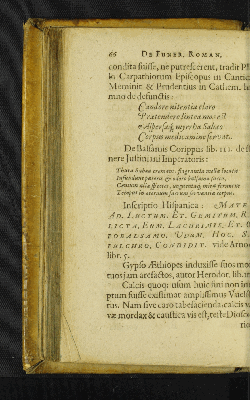 66 DE FUNER. ROMAN.
condita fuisse, ne putresceret, tradit Ph
lo Carpathiorum Episcopus in Cantic
Meminit & Prudentius in Cathem. h
mno de defunctis:
Candore nitentia claro
Prætendere lintea mos est
Aspersaq; myrrha Sabæo
Corpus medicamine servat.
De Balsamis Corippus lib. III. de
nere Justiniani Imperatoris:
Thura Sabæa cremant, fragrantia mella locatis
Infundunt pateris, & odoro balsama succo,
Centum aliæ species, unguentaq; mira feruntur
Tempus in æternum sacrum servantia corpus.
Inscriptio Hispanica: MATE
AD. LUCTUM. ET. GEMITUM. R
LICTA. EUM. LACHRIMIS. ET.
OBALSAMO. UDUM. HOC. S
PULCHRO. CONDIDIT. vide
libr. 5.
Gypso Æthiopes induxisse suos mo
tuos jam arefactos, autor Herodot. lib.
Calcis quoq; usum huic fini non in
ptum fuisse existimat amplissimus
tius. Nam sive caro tabefacienda, calcis
væ mordax & caustica vis est, teste Diosc